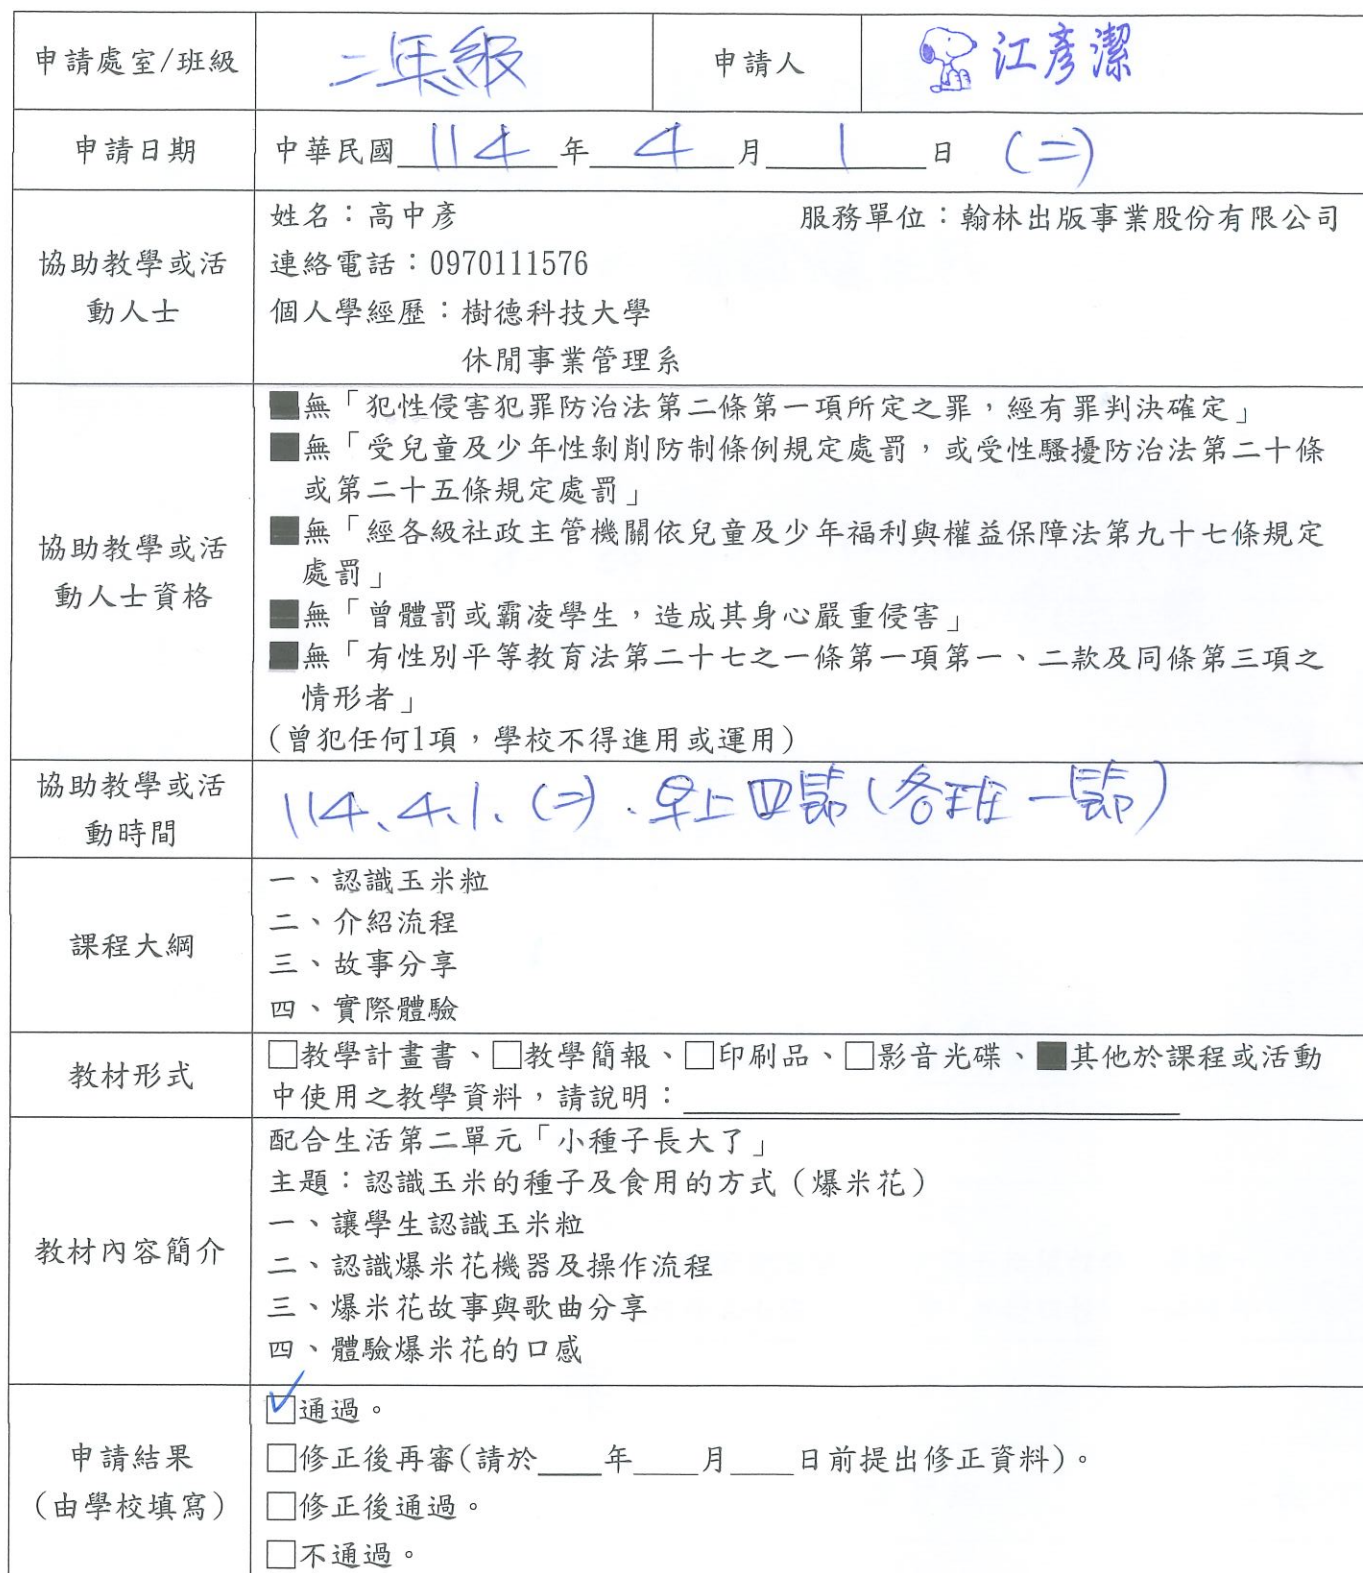 申請處室/班級 二年級 申請人 江彥潔
申請日期 中華民國 114 年 4 月 1 日 (二)
姓名：高中彥 服務單位：翰林出版事業股份有限公司
協助教學或活 連絡電話：0970111576
動人士 個人學經歷：樹德科技大學
休閒事業管理系
■無「犯性侵害犯罪防治法第二條第一項所定之罪，經有罪判決確定」
■無「受兒童及少年性剝削防制條例規定處罰，或受性騷擾防治法第二十條
或第二十五條規定處罰」
協助教學或活 ■無「經各級社政主管機關依兒童及少年福利與權益保障法第九十七條規定
動人士資格 處罰」
■無「曾體罰或霸凌學生，造成其身心嚴重侵害」
■無「有性別平等教育法第二十七之一條第一項第一、二款及同條第三項之
情形者」
(曾犯任何1項，學校不得進用或運用)
協助教學或活
動時間 114、4、1、(二)、早上四節(各班一節)
一、認識玉米粒
課程大綱 二、介紹流程
三、故事分享
四、實際體驗
教材形式 □教學計畫書、□教學簡報、□印刷品、□影音光碟、■其他於課程或活動
中使用之教學資料，請說明：
配合生活第二單元「小種子長大了」
主題：認識玉米的種子及食用的方式（爆米花）
一、讓學生認識玉米粒
教材內容簡介 二、認識爆米花機器及操作流程
三、爆米花故事與歌曲分享
四、體驗爆米花的口感
☑通過。
申請結果 □修正後再審(請於____年____月____日前提出修正資料)。
(由學校填寫) □修正後通過。
□不通過。